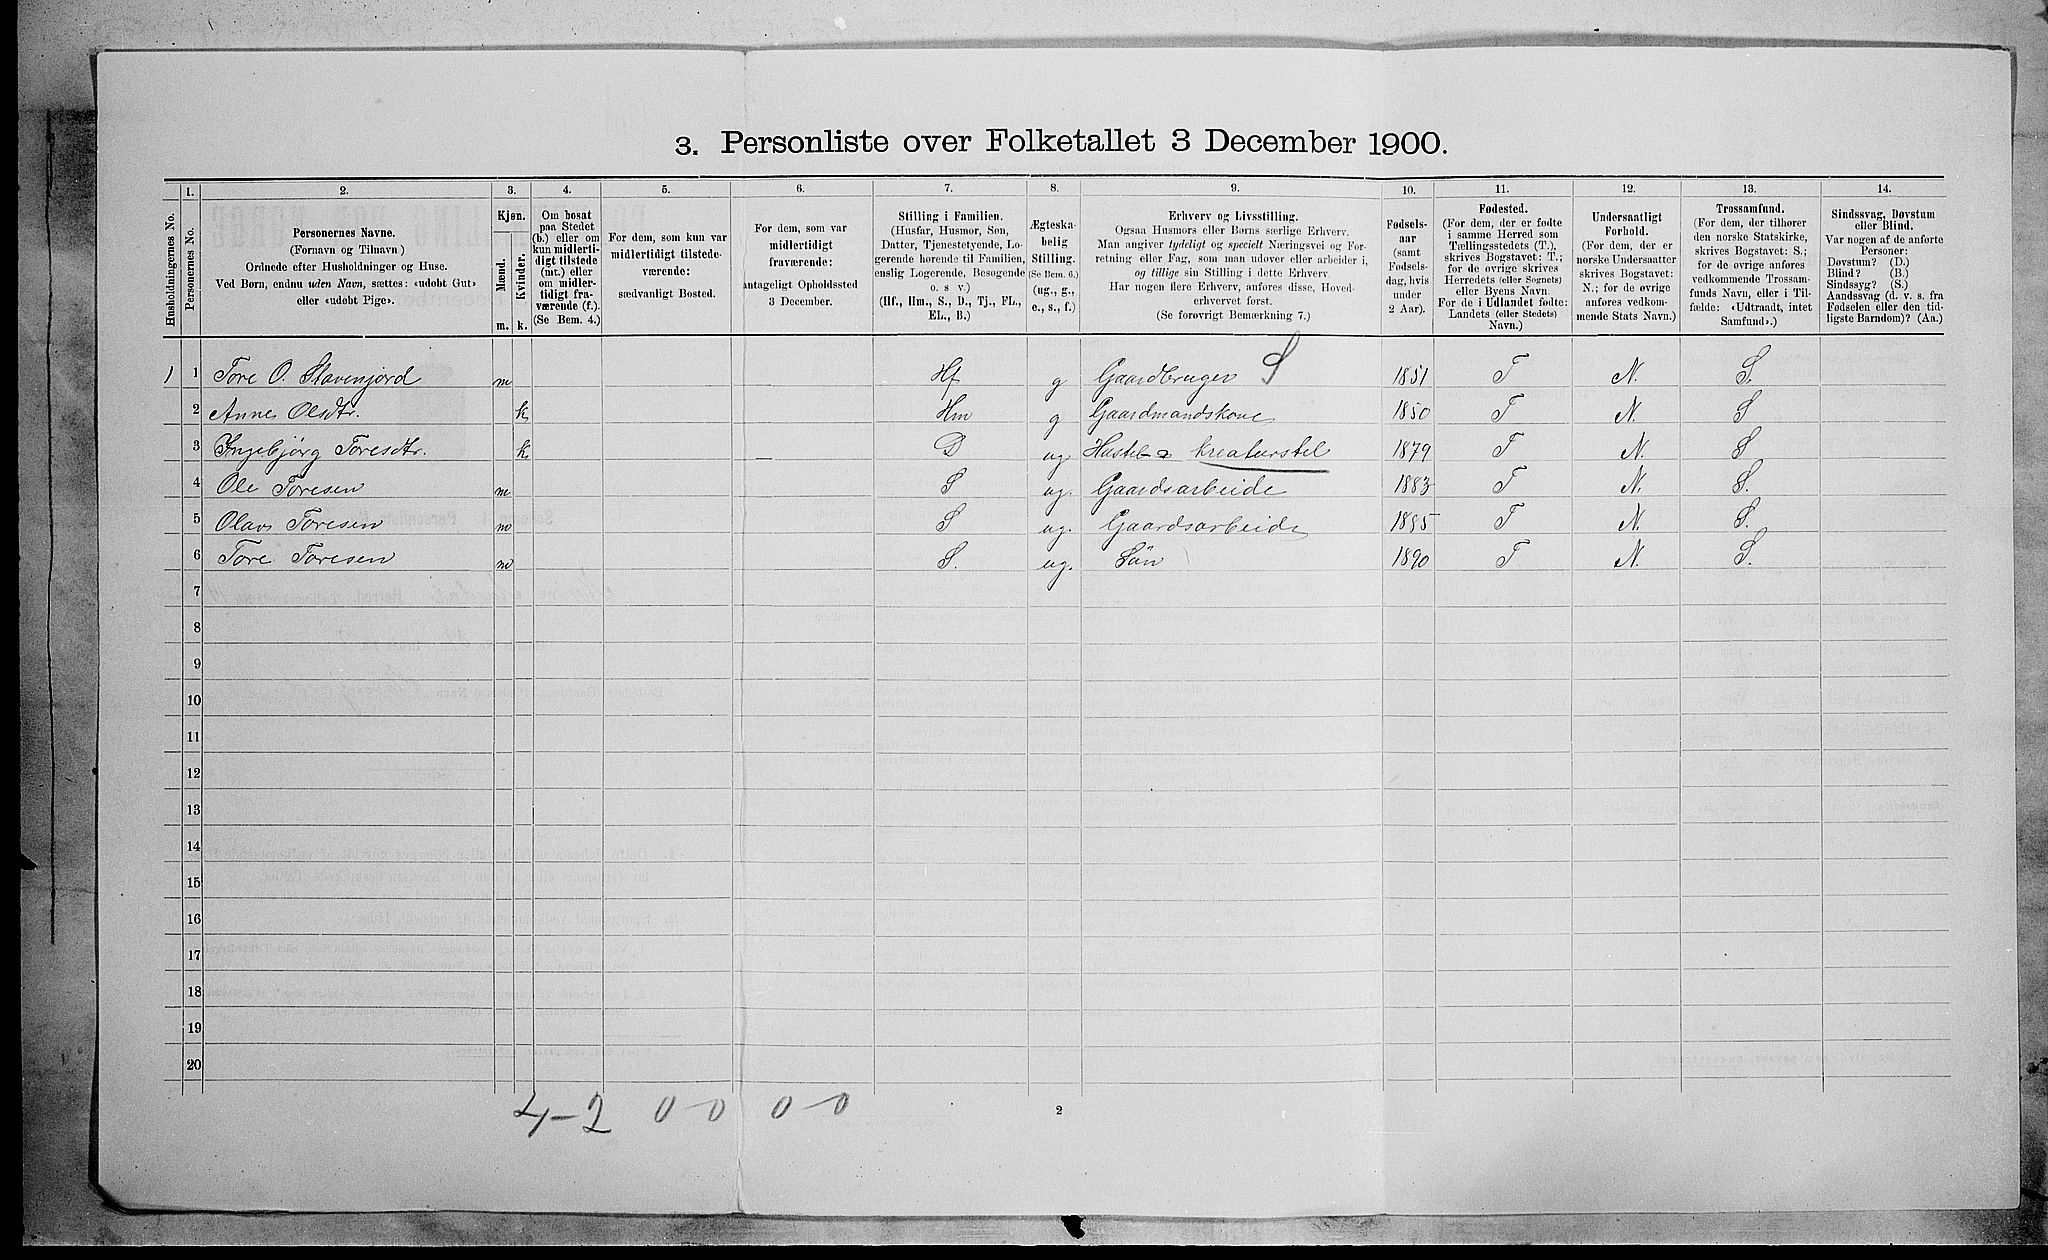 3. Personliste over Folketallet 3 December 1900.
1. 2. 3. 4. 5. 6. 7. 8. 9. 10. 11. 12. 13. 14.
Husholdningernes No.
Personernes No.
Personernes Navne.
(Fornavn og Tilnavn)
Ordnede efter Husholdninger og Huse.
Ved Børn, endnu uden Navn, sættes: «udøbt Gut»
eller «udøbt Pige».
Kjøn.
Mænd.
Kvinder.
m. k.
Om bosat
paa Stedet
(b.) eller om
kun midlerti-
digt tilstede
(mt.) eller
om midler-
tidigt fra-
værende (f.).
(Se Bem. 4.)
For dem, som kun var
midlertidigt tilstede-
værende:
sædvanligt Bosted.
For dem, som var
midlertidigt
fraværende:
antageligt Opholdssted
3 December.
Stilling i Familien.
(Husfar, Husmor, Søn,
Datter, Tjenestetyende, Lo-
gerende hørende til Familien,
enslig Logerende, Besøgende
o. s. v.)
(Hf., Hm., S., D., Tj., FL.,
EL., B.)
Ægteska-
belig
Stilling.
(Se Bem. 6.)
(ug., g.,
e., s., f.)
Erhverv og Livsstilling.
Ogsaa Husmors eller Børns særlige Erhverv.
Man angiver tydeligt og specielt Næringsvei og For-
retning eller Fag, som man udover eller arbeider i,
og tillige sin Stilling i dette Erhverv.
Har nogen flere Erhverv, anføres disse, Hoved-
erhvervet først.
(Se forøvrigt Bemærkning 7.)
Fødsels-
aar
(samt
Fødsels-
dag, hvis
under
2 Aar).
Fødested.
(For dem, der er fødte
i samme Herred som
Tællingsstedets (T.),
skrives Bogstavet: T.;
for de øvrige skrives
Herredets (eller Sognets)
eller Byens Navn.
For de i Udlandet fødte:
Landets (eller Stedets)
Navn.)
Undersaatligt
Forhold.
(For dem, der er
norske Undersaatter
skrives Bogstavet:
N.; for de øvrige
anføres vedkom-
mende Stats Navn.)
Trossamfund.
(For dem, der tilhører
den norske Statskirke,
skrives Bogstavet: S.;
for de øvrige anføres
vedkommende Trossam-
funds Navn, eller i Til-
fælde: «Udtraadt, intet
Samfund».)
Sindssvag, Døvstum
eller Blind.
Var nogen af de anførte
Personer:
Døvstum? (D.)
Blind? (B.)
Sindssyg? (S.)
Aandssvag (d. v. s. fra
Fødselen eller den tid-
ligste Barndom)? (Aa.)
1 1 Tore O. Stavenjord m Hf g Gaardbruger S 1851 T N. S.
2 Anne Olsdtr. k Hm g Gaardmandskone 1850 T N. S
3 Ingebjørg Toresdtr. k — D ug Hustel- Kreaturstel 1879 T N. S
4 Ole Toresen m S ug. Gaardsarbeide 1883 T N. S.
5 Olav Toresen m S ug. Gaardsarbeide 1885 T N. S.
6 Tore Toresen m S. ug. Søn 1890 T N. S.
7
8
9
10
11
12
13
14
15
16
17
18
19
20
4-2 0-0 0-0
2